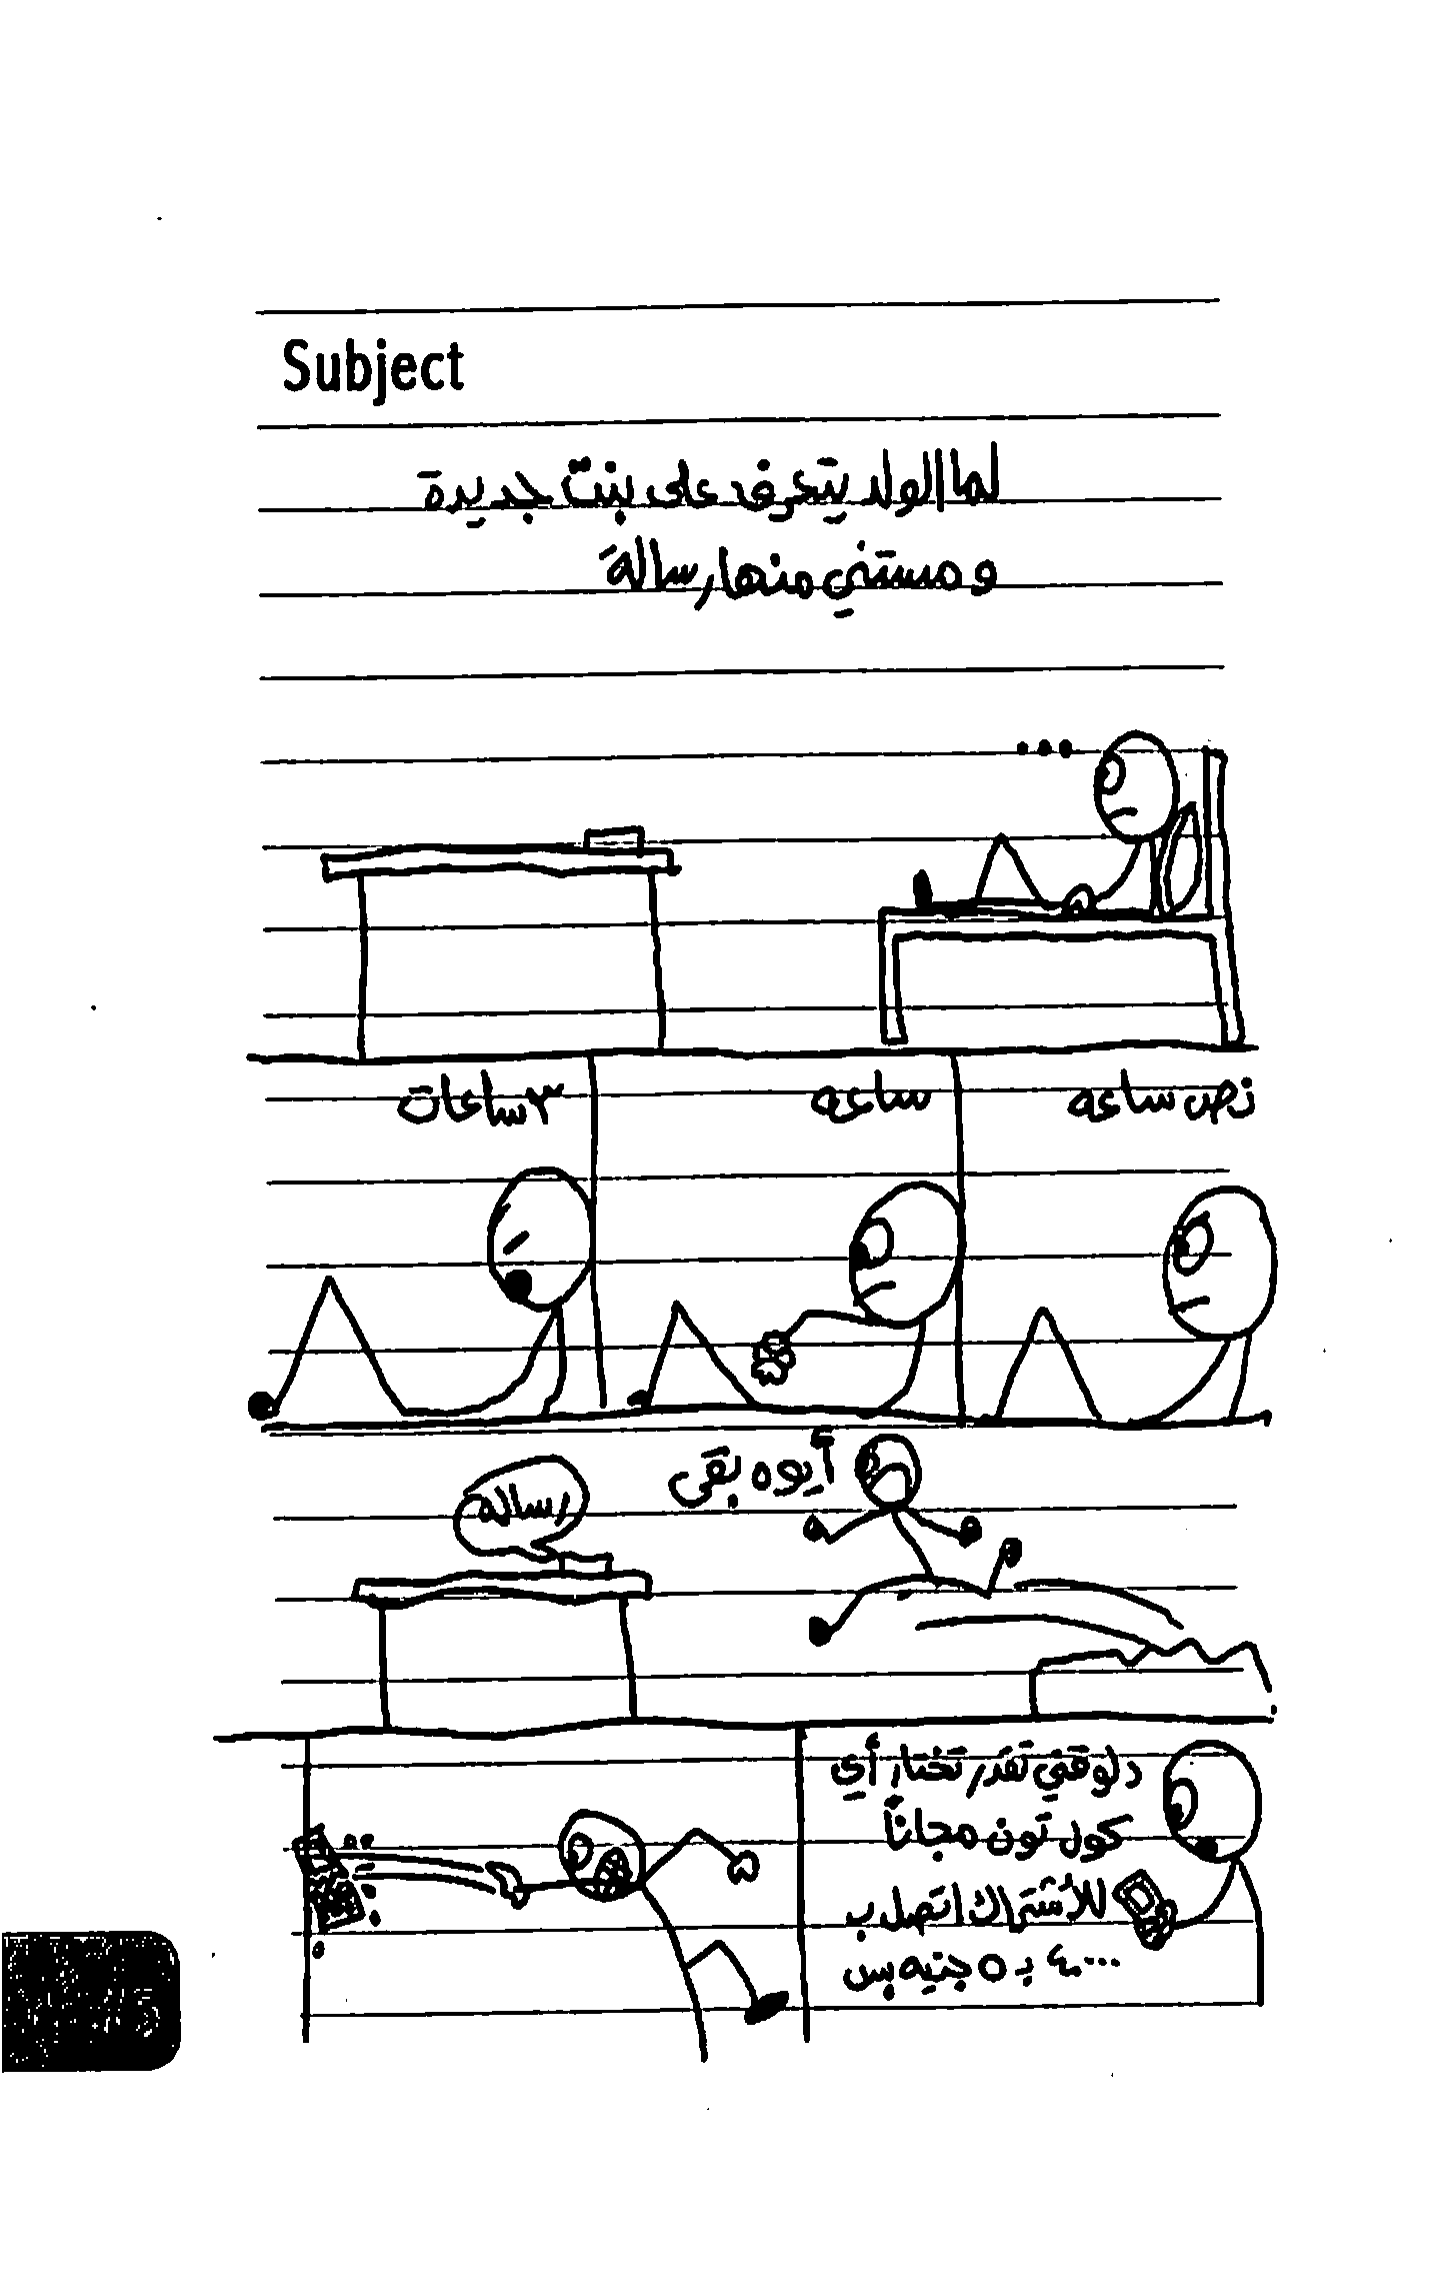 Subject
لما الولد يتعرف على بنت جديدة
و مستني منها رسالة
...
نص ساعه
ساعه
٣ ساعات
أيوه بقى
رسالة
دلوقتي تقدر تختار أي
كول تون مجاناً
للأشتراك اتصل ب
٤٠٠٠ بـ ٥ جنيه بس